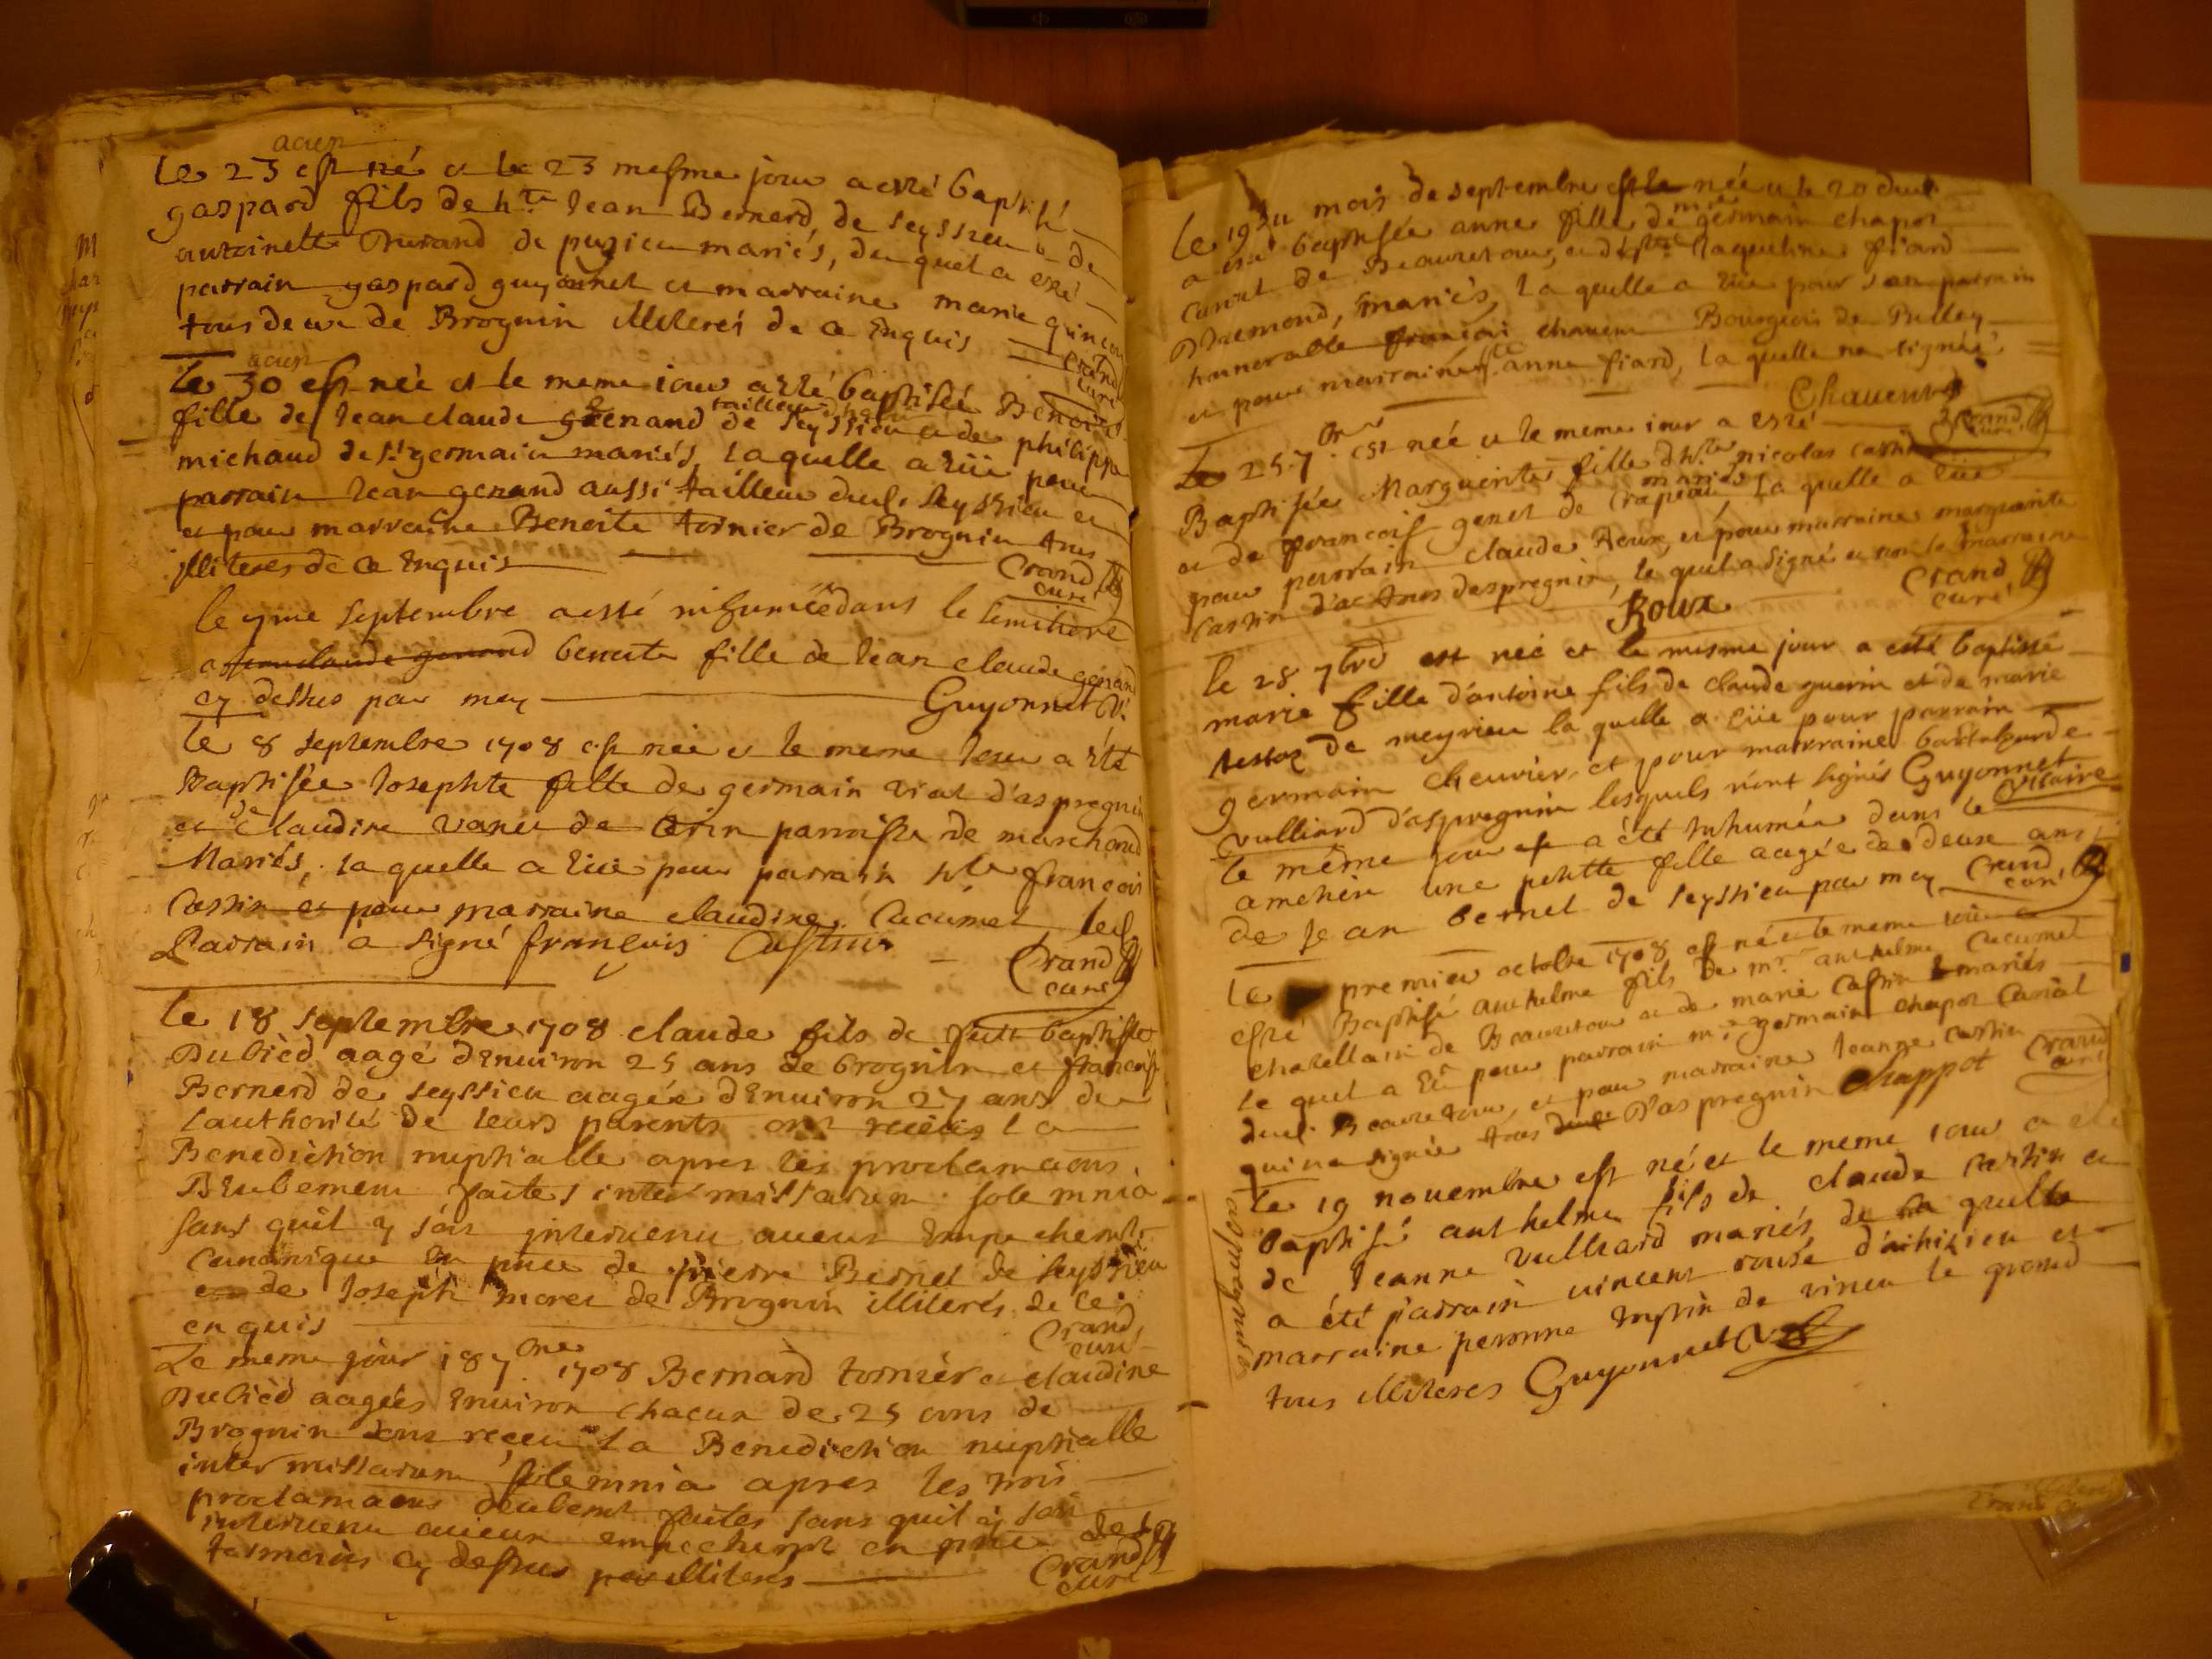 aoust
Le 23 est né et le 23 mesme jour a esté baptisé
gaspard fils de h.te Jean Bernerd, de seyssieu et de
antoinette Durand de pugieu mariés, du quel a esté
parrain gaspard guyonnet et marraine marie quinson
tous deux de Brognin illiterés de ce enquis
Crand
curé
aoust
Le 30 est née et le meme iour a esté baptisée Benoite
fille de Jean claude genand tailleur d'habit de seyssieu et de philippe
michaud de st germain mariés, laquelle a eüe pour
parrain Jean genand aussi tailleur dud. seyssieu et
et pour marraine Benoite tornier de Brognin tous
illiteres de ce enquis
Crand
curé
le 7me septembre a esté inhumée dans le semitiere
benoite fille de Jean claude genand
cy dessus par moy Guyonnet v.
Le 8 septembre 1708 est née et le meme Jour a été
Baptisée Josephte fille de germain viat d'aspregnin
et de claudine vanet de Cerin parroisse de marchand
Mariés, la quelle a eüe pour parrain h.te françois
Castin et pour marraine claudine Cucumet, led.
Parrain a signé françois Castin
Crand
curé
Le 18 septembre 1708 claude fils de Jean baptiste
Dubièd aagé d'Enuiron 25 ans de brognin et francoise
Bernerd de seyssieu aagée d'Enuiron 27 ans de
l'authorité de leurs parents ont receus la
Benediction nuptialle apres les proclamaons
Deubement faites inter missarum solemnia
sans quil y soit interuenu aucun Empechemt
Canonique en pnce de pierre Bernet de seyssieu
et de Joseph moret de Brognin illiterés de ce
enquis
Crand
curé
Le meme jour 18 7bre 1708 Bernard torniér et claudine
Dubièd aagées Enuiron chacun de 25 ans de
Brognin ont reçeu la Benediction nuptialle
inter missarum solemnia apres les trois
proclamaons deubemt faites sans quil y soit
interuenu aucun empechemt en pnce des
tesmoins cy dessus illiteres
Crand
curé
Le 19 du mois de septembre est née et le 20 dud.
a esté baptisée anne fille de m.re germain chapot
Curial de Beauretour, et d' Jaqueline fiard
mariés, la quelle a eüe pour son parrain
honnorable chauein Bourgeois de Belley
et pour marraine anne fiard, la quelle na signée
Chauein
Crand
curé
Le 25 7bre est née et le meme iour a esté
Baptisée Marguerite fille d'h.te nicolas castin
et de francoise genet de Crapeau mariés, la quelle a eüe
pour parrain claude Roux, et pour marraine marguerite
Castin d'a tous daspregnin, le quel a signé et non la marraine
Roux
Crand
curé
le 28 7bre est neé et le mesme jour a esté baptisée
marie fille d'antoine fils de claude guerin et de marie
testaz de meyrieu la quelle a eüe pour parrain
germain cheurier, et pour marraine
vulliard d'aspregnin lesquels n'ont signés Guyonnet
vicaire
Le même jour a été Inhumée dans le
une petitte fille aagée de deux ans
de Jean bernet de seyssieu par moy
Crand
curé
Le premier octobre 1708 est né et le meme iour a
esté Baptisé anthelme fils de m.re anthelme Cucumet
chatellain de Beauretour et de marie Castin mariés
le quel a Eu pour parrain m.re germain chapot Curial
dud. Beauretour, et pour marraine Jeanne castin
qui na signée tous d'aspregnin Chappot
Crand
curé
aspregnin
Le 19 nouembre est né et le meme iour a été
baptisé anthelme fils de claude castin et
de Jeanne vulliard mariés, de la quelle
a été parrain vincent rouse d'achizieu et
marraine peronne de vineu le grand
tous illiteres Guyonnet v.